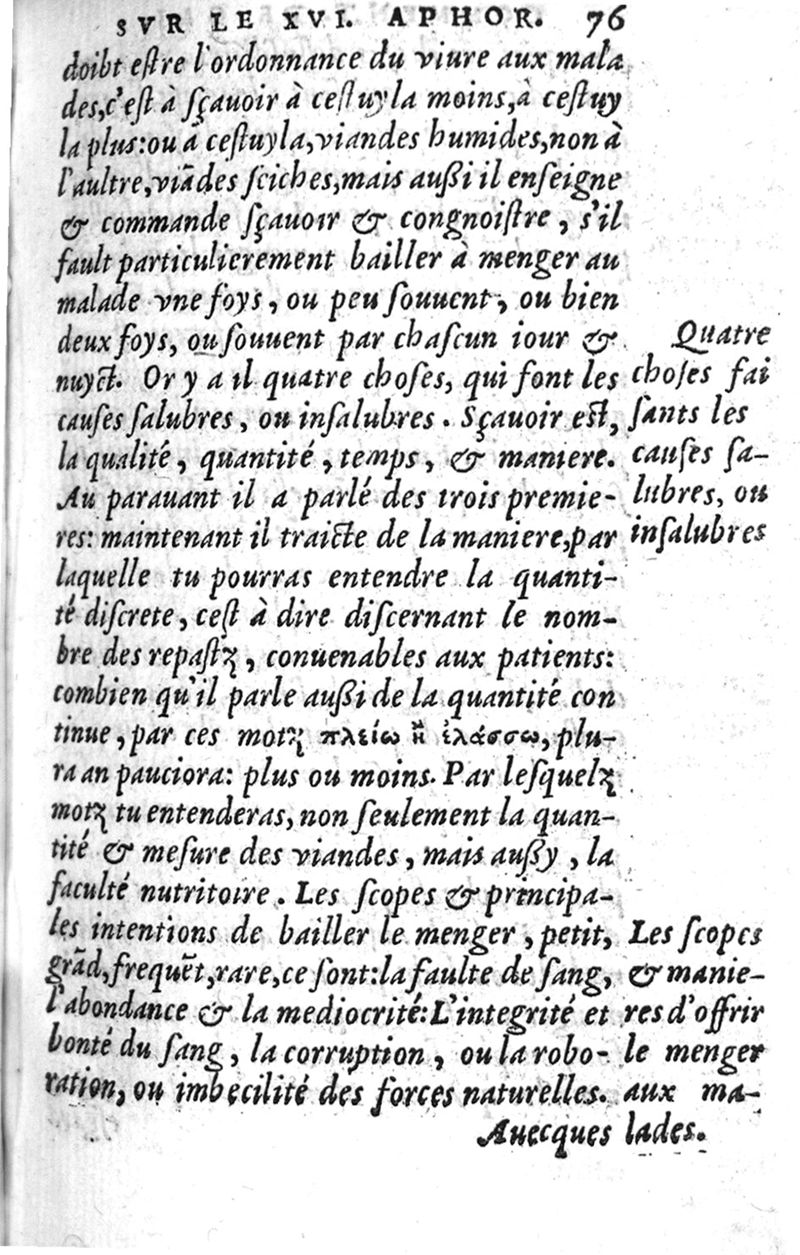 SVR LE XVI. APHOR. 76
doibt eſtre l'ordonnance du viure aux mala
des, c'eſt à ſçauoir à ceſtuyla moins, à ceſtuy
la plus: ou à ceſtuyla, viandes humides, non à
l'aultre, viãdes ſeiches, mais außi il enſeigne
& commande ſçauoir & congnoiſtre, s'il
fault particulierement bailler à menger au
malade vne foys, ou peu ſouuent, ou bien
deux foys, ou ſouuent par chaſcun iour &
nuyct. Or y a il quatre choſes, qui font les
cauſes ſalubres, ou inſalubres. Sçauoir eſt,
la qualité, quantité, temps, & maniere.
Au parauant il a parlé des trois premie-
res: maintenant il traicte de la maniere, par
laquelle tu pourras entendre la quanti-
té diſcrete, ceſt à dire diſcernant le nom-
bre des repaſtz, conuenables aux patients:
combien qu'il parle außi de la quantité con
tinue, par ces motz πλείω ἢ ἐλάσσω, plu-
ra an pauciora: plus ou moins. Par leſquelz
motz tu entenderas, non ſeulement la quan-
tité & meſure des viandes, mais außy, la
faculté nutritoire. Les ſcopes & principa-
les intentions de bailler le menger, petit,
grãd, frequẽt, rare, ce ſont: la faulte de ſang,
l'abondance & la mediocrité: L'integrité et
bonté du ſang, la corruption, ou la robo-
ration, ou imbecilité des forces naturelles.
Auecques
Quatre
choſes fai
ſants les
cauſes ſa-
lubres, ou
inſalubres
Les ſcopes
& manie-
res d'offrir
le menger
aux ma-
lades.